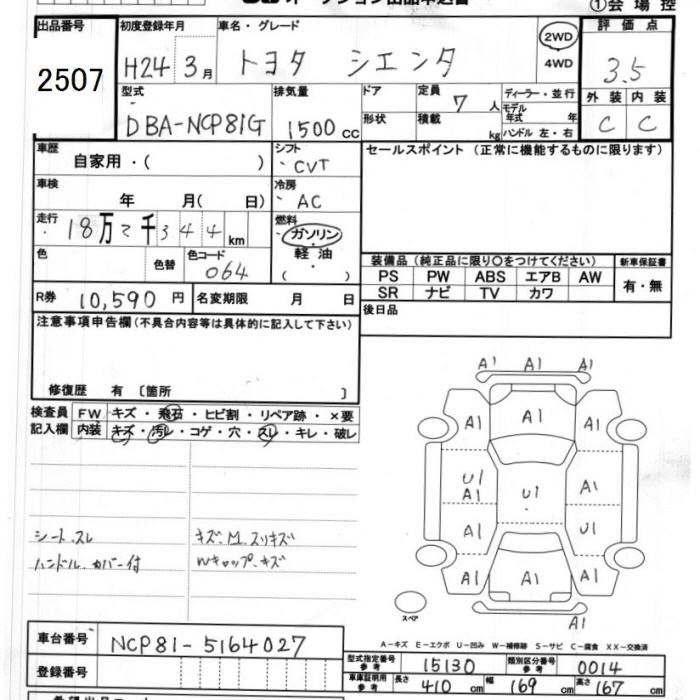 オークション出品申込書 ①会場控
出品番号 初度登録年月 車名・グレード 2WD 評価点
2507 H24 3月 トヨタ シエンタ 4WD 3.5
型式 排気量 ドア 定員 ディーラー・並行 外装 内装
DBA-NCP81G 1500cc 7人 モデル年式 年 C C
形状 積載 kg ハンドル 左・右
車歴 自家用・( ) シフト CVT セールスポイント (正常に機能するものに限ります)
車検 年 月( 日) 冷房 AC
走行 18万2千344km 燃料 ガソリン
軽油
( )
色 色替 色コード 064
装備品(純正品に限り○をつけてください) 新車保証書
PS PW ABS エアB AW 有・無
SR ナビ TV カワ
R券 10,590円 名変期限 月 日 後日品
注意事項申告欄(不具合内容等は具体的に記入して下さい)
修復歴 有 〔箇所 〕
検査員 FW キズ・飛石・ヒビ割・リペア跡・×要
記入欄 内装 キズ・汚レ・コゲ・穴・スレ・キレ・破レ
A1 A1 A1
A1 A1 A1
U1 A1 U1 A1
A1 U1
A1 A1 A1
A1
シート.スレ キズ.M.スリキズ
ハンドル.カバー付 Wキャップ.キズ
スペア
A-キズ E-エクボ U-凹み W-補修跡 S-サビ C-腐食 XX-交換済
車台番号 NCP81-5164027
登録番号
型式指定番号 参考 15130 類別区分番号 参考 0014
車庫証明用 参考 長さ 410cm 幅 169cm 高さ 167cm